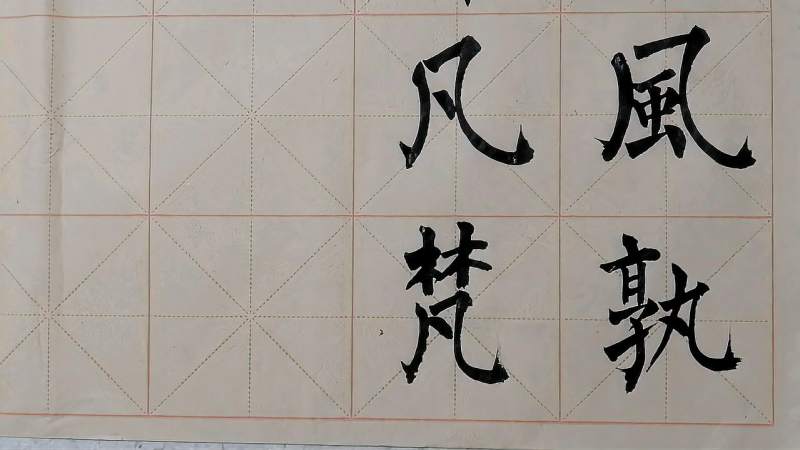 風孰
凡梵